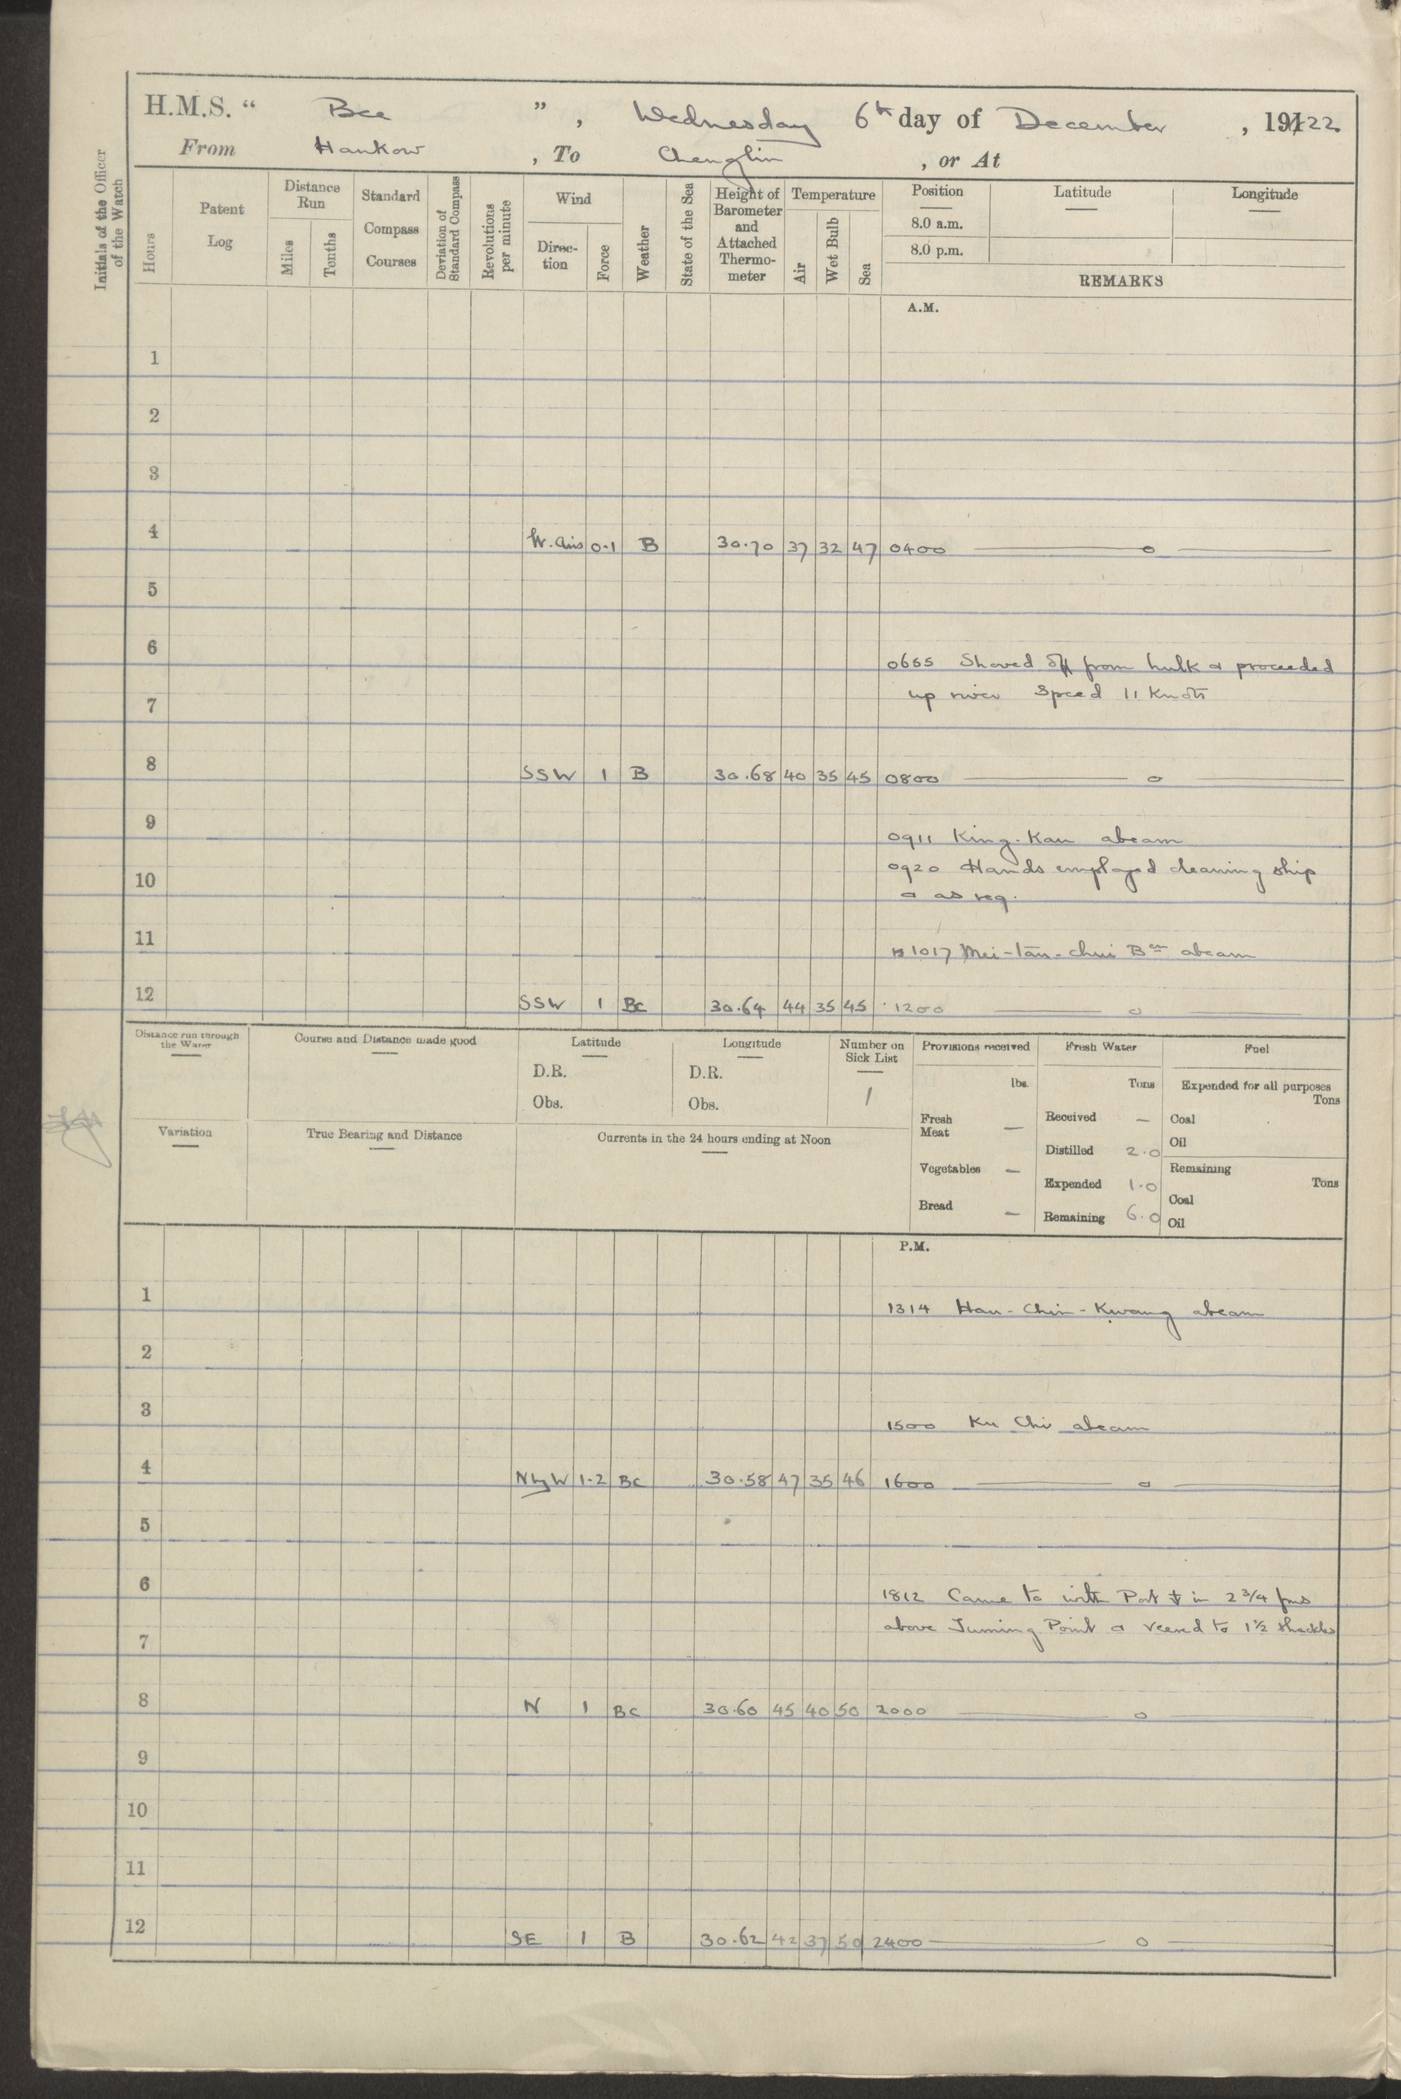 H.M.S. “ Bee ” , Wednesday 6th day of December , 1922
From Hankow , To Chenglin , or At
Initials of the Officer of the Watch
Hours
Patent Log
Distance Run
Miles
Tenths
Standard Compass Courses
Deviation of Standard Compass
Revolutions per minute
Wind
Direc-tion
Force
Weather
State of the Sea
Height of Barometer and Attached Thermo-meter
Temperature
Air
Wet Bulb
Sea
Position
Latitude
Longitude
8.0 a.m.
8.0 p.m.
REMARKS
A.M.
1
2
3
4 0-1 B 30.70 37 32 47 0400
5
6 0655 Shoved off from hulk & proceeded
up river Speed 11 Knots
7
8 SSW 1 B 30.68 40 35 45 0800
9 0911 King-Kau abeam
10 0920 Hands employed cleaning ship
& as req.
11 1017 Mei-tan-chui Bcn abeam
12 SSW 1 BC 30.64 44 35 45 1200
Distance run through the Water
Course and Distance made good
Latitude
D.R.
Obs.
Longitude
D.R.
Obs.
Number on Sick List
1
Provisions received
lbs.
Fresh Meat —
Vegetables —
Bread —
Fresh Water
Tons
Received —
Distilled 2.0
Expended 1.0
Remaining 6.0
Fuel
Expended for all purposes
Tons
Coal
Oil
Remaining
Tons
Coal
Oil
Variation
True Bearing and Distance
Currents in the 24 hours ending at Noon
P.M.
1 1314 Hau-Chin-Kwang abeam
2
3 1500 Ku Chi abeam
4 NbyW 1-2 BC 30.58 47 35 46 1600
5
6 1812 Came to with Port ⚓ in 2 3/4 fms
above Turning Point & veered to 1½ shackles
7
8 N 1 BC 30.60 45 40 50 2000
9
10
11
12 SE 1 B 30.62 42 37 50 2400